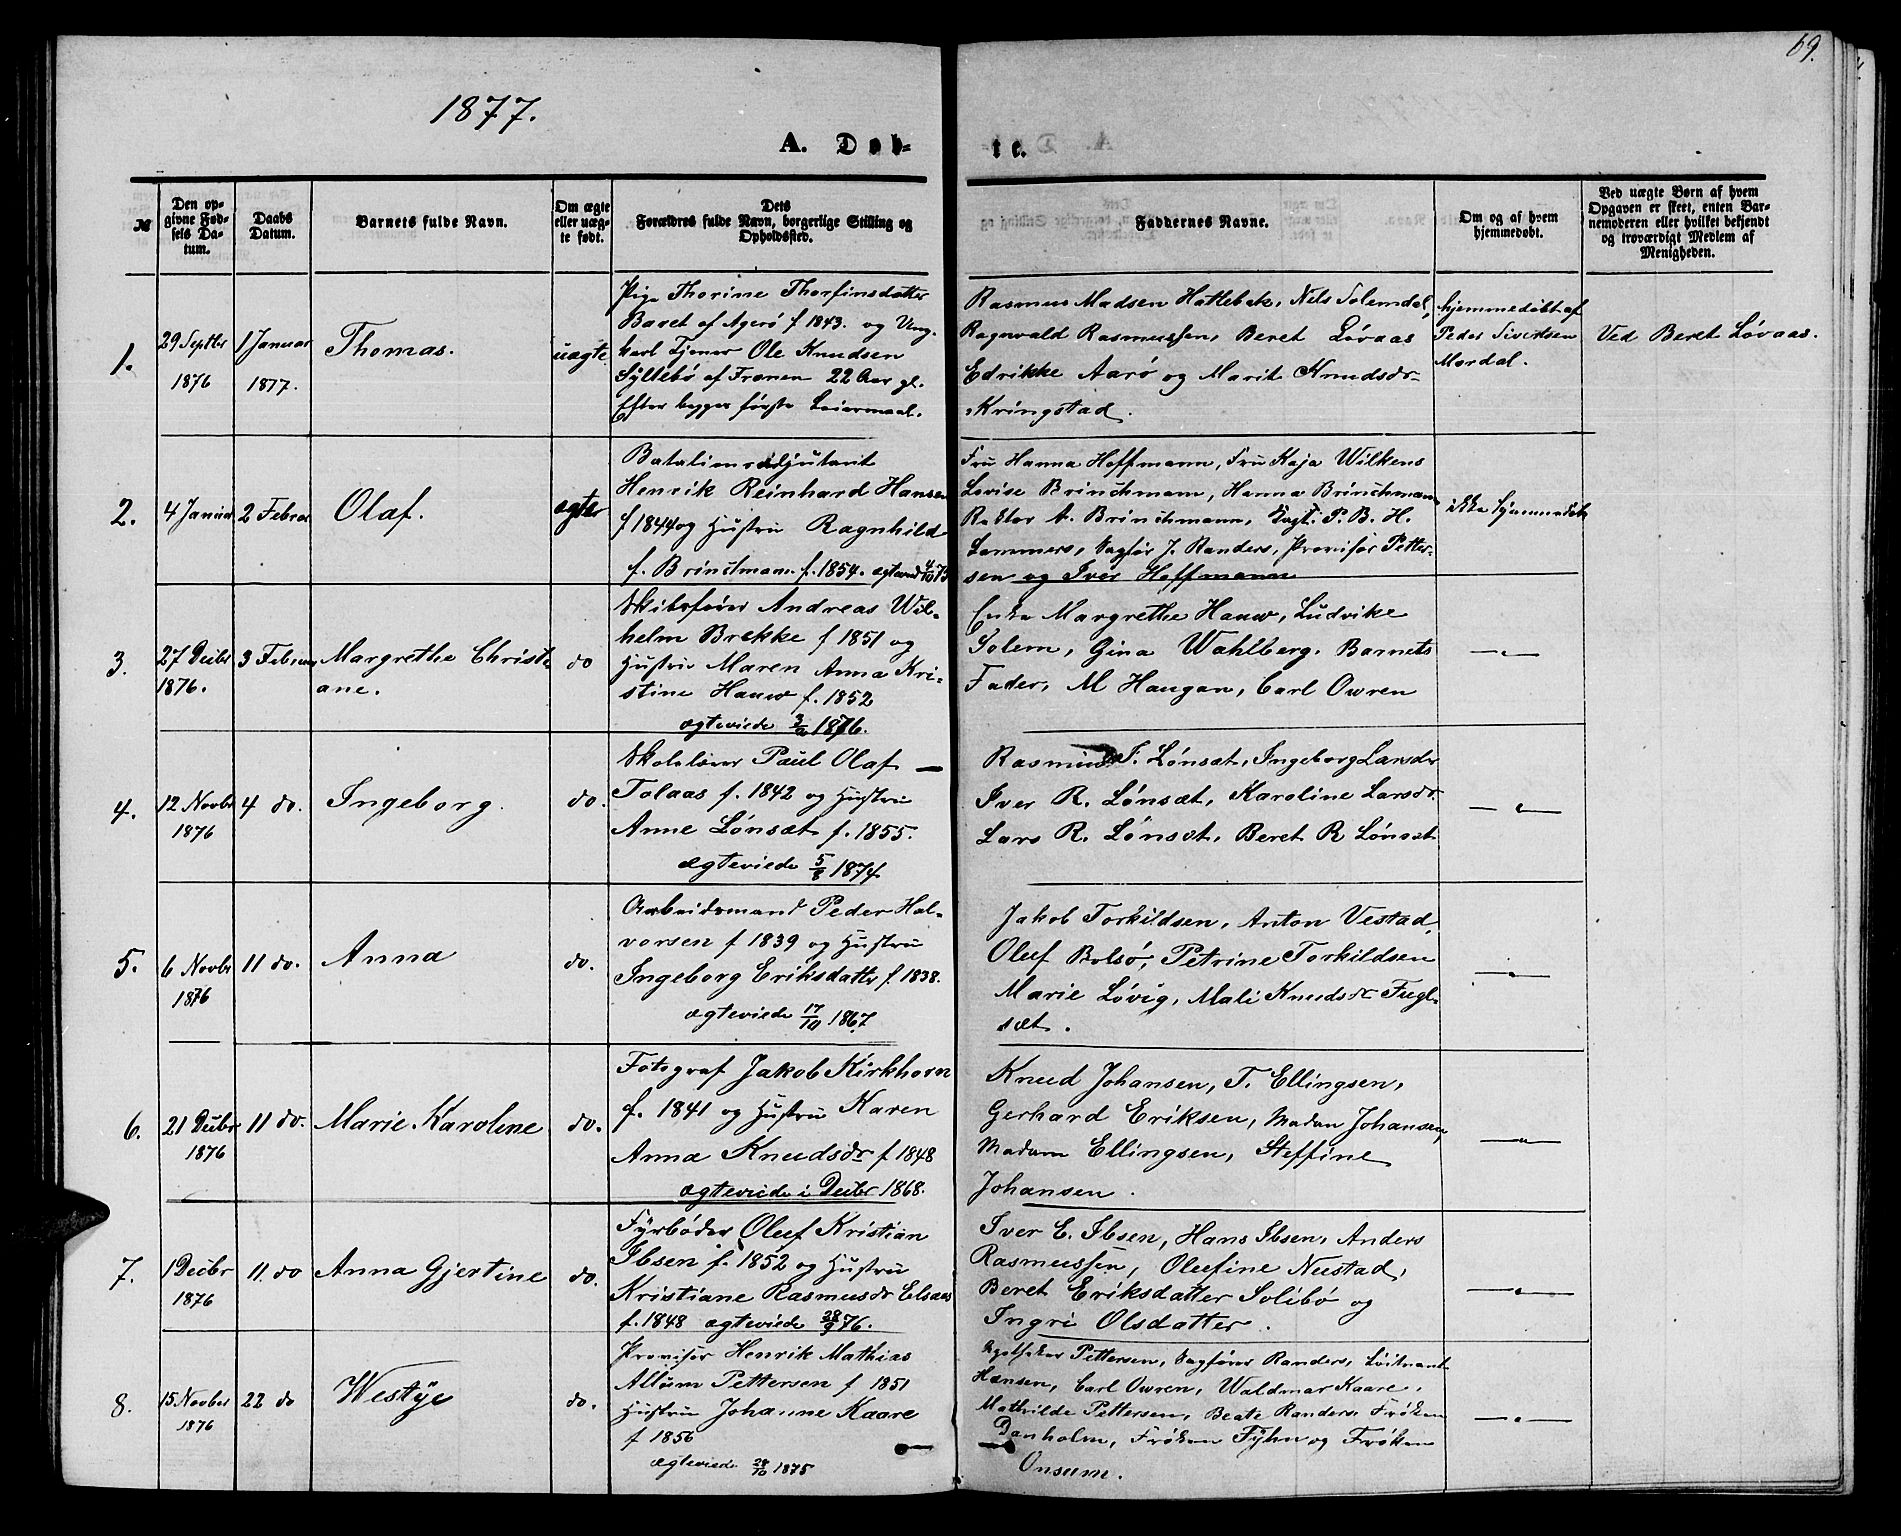 69.
1877.
A. Døb-
te.
№
Den op-
givne Fød-
sels Da-
tum.
Daabs
Datum.
Barnets fulde Navn.
Om ægte
eller uæg-
te født.
Dets
Forældres fulde Navn, borgerlige Stilling og
Opholdssted.
Faddernes Navne.
Om og af hvem
hjemmedøbt.
Ved uægte Børn af hvem
Opgaven er skeet, enten Bar-
nemoderen eller hvilket bekjendt
og troværdigt Medlem af
Menigheden.
1.
29 Septbr
1876
1 Januar
1877.
Thomas.
uægte
Pige Thorine Thorfinsdatter
Baret af Agerø f 1843. og Ung-
karl Tjener Ole Knudsen
Syltebø af Frænen 22 Aar gl.
Efter begges første Leiermaal.
Rasmus Madsen Hatlebak, Nels Solemdal,
Ragnvald Rasmussen, Beret Løvaas
Edrikke Aarø og Marit Knudsdr
Kringstad.
hjemmedøbt af
Peder Sivertsen
Mordal.
Ved Beret Løvaas.
2.
4 Januar
2 Februar
Olaf.
ægte
Batalionsadjutant
Henrik Reinhard Hansen
f 1844 og Hustru Ragnhild
f. Brinchmann f. 1854. ægteviet 4/10 75
Fru Hanna Hoffmann, Fru Kaja Wilkens
Lovise Brinchmann, Hanna Brinchmann
Rektor A. Brinchmann, Kapt. P. B. H.
Lammers, Sagfør J. Randers, Provisor Petter-
sen og Iver Hoffmann
ikke hjemmedøbt
3.
27 Decbr
1876.
3 Februar
Margrethe Christi-
ane.
do
Skibsfører Andreas Wil-
helm Brekke f 1851 og
Hustru Maren Anna Kri-
stine Hauw f. 1852
ægteviede 3/2 1876.
Enke Margrethe Hauw, Ludvike
Solem, Gina Wahlberg. Barnets
Fader, M Haugan, Carl Owren
— " —
4.
12 Novbr
1876
4 do.
Ingeborg.
do.
Skolelærer Paul Olaf —
Tolaas f. 1842 og Hustru
Anne Lønsæt f. 1855.
ægteviede 5/8 1874
Rasmus I. Lønsæt, Ingeborg Larsdr
Iver R. Lønsæt, Karoline Larsdr.
Lars R. Lønsæt, Beret R Lønsæt
— " —
5.
6 Novbr
1876
11 do.
Anna
do.
Arbeidsmand Peder Hal-
vorsen f 1839 og Hustru
Ingeborg Eriksdatter f. 1838.
ægteviede 17/10 1867
Jakob Torkildsen, Anton Vestad,
Oluf Bolsø, Petrine Torkildsen
Marie Løvig, Mali Knudsdr Fugl-
sæt.
— " —
6.
21 Decbr
1876
11 do.
Marie Karoline
do.
Fotograf Jakob Kirkhorn
f. 1841 og Hustru Karen
Anna Knudsdr f 1848
ægteviede i Decbr 1868.
Knud Johansen, T. Ellingsen,
Gerhard Eriksen, Madam Johansen,
Madam Ellingsen, Steffine
Johansen.
— " —
7.
1 Decbr
1876
11 do
Anna Gjertine
do.
Fyrbøder Oluf Kristian
Ibsen f. 1852 og Hustru
Kristiane Rasmusdr Elsaas
f. 1848 ægteviede 28/9 76.
Iver E. Ibsen, Hans Ibsen, Anders
Rasmussen, Olufine Neustad,
Beret Eriksdatter Solibø og
Ingri Olsdatter.
— " —
8.
15 Novber
1876
22 do
Westye
do.
Provisor Henrik Mathias
Allum Pettersen f 1851
Hustru Johanne Kaare
f 1856
ægteviede 28/10 1875
Apotheker Pettersen, Sagfører Randers, Løitnant
Hansen, Carl Owren, Waldmar Kaare,
Mathilde Pettersen, Beate Randers, Frøken
Danholm, Frøken Tyhn og Frøken
Onsum.
— " —